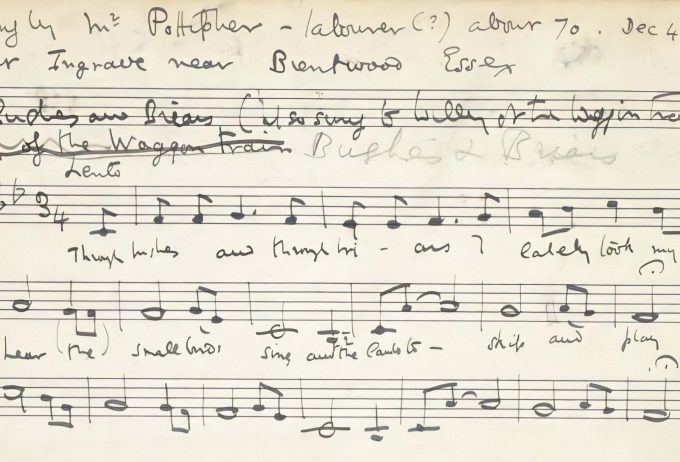 by Mr Pottipher - labourer (?) about 70. Dec 4
Ingrave near Brentwood Essex
Bushes and Briars (also sung to Willy of the Waggon
of the Waggon Train Bushes & Briars
Lento
3/4
Through bushes and through bri - ars I lately took my
hear (the) small birds sing and the lambs to - skip and play